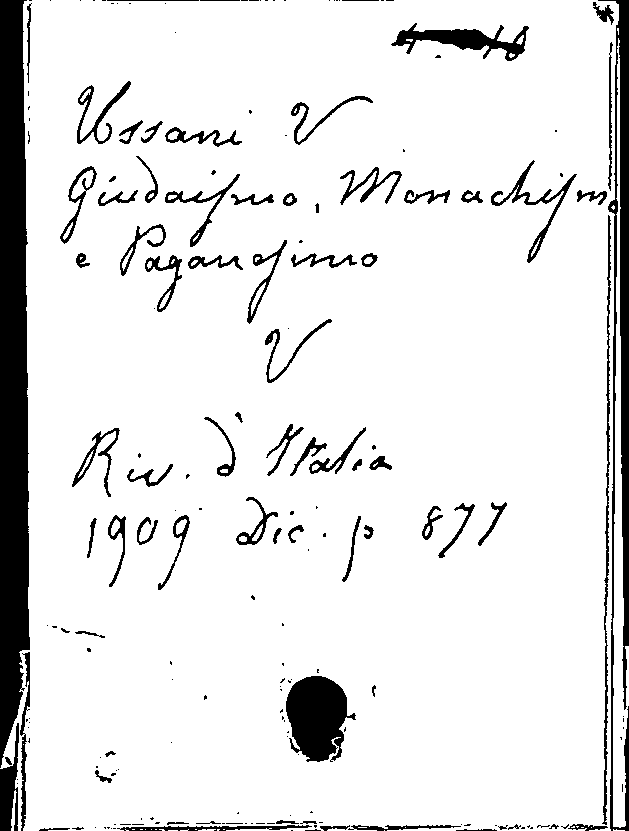 Ussani V
Giudaismo, Monachismo
e Paganesimo
V
Riv. d'Italia
1909 Dic. p 877